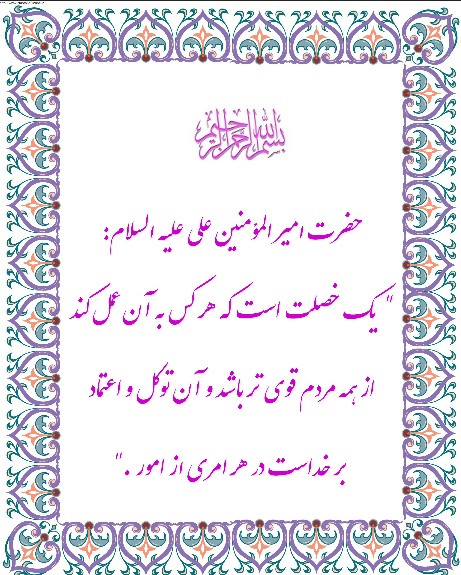 بسم الله الرحمن الرحیم
حضرت امیرالمؤمنین علی علیه السلام:
" یک خصلت است که هر کس به آن عمل کند
از همه مردم قوی تر باشد و آن توکل و اعتماد
بر خداست در هر امری از امور . "